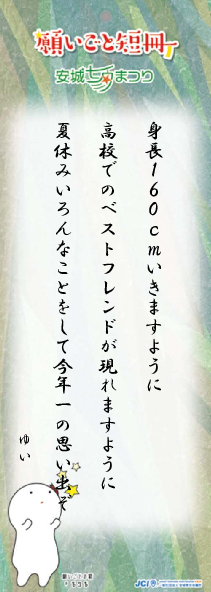 願いごと短冊
安城七夕まつり
身長160cmいきますように
高校でのベストフレンドが現れますように
夏休みいろんなことをして今年一の思い出を
ゆい
JCI